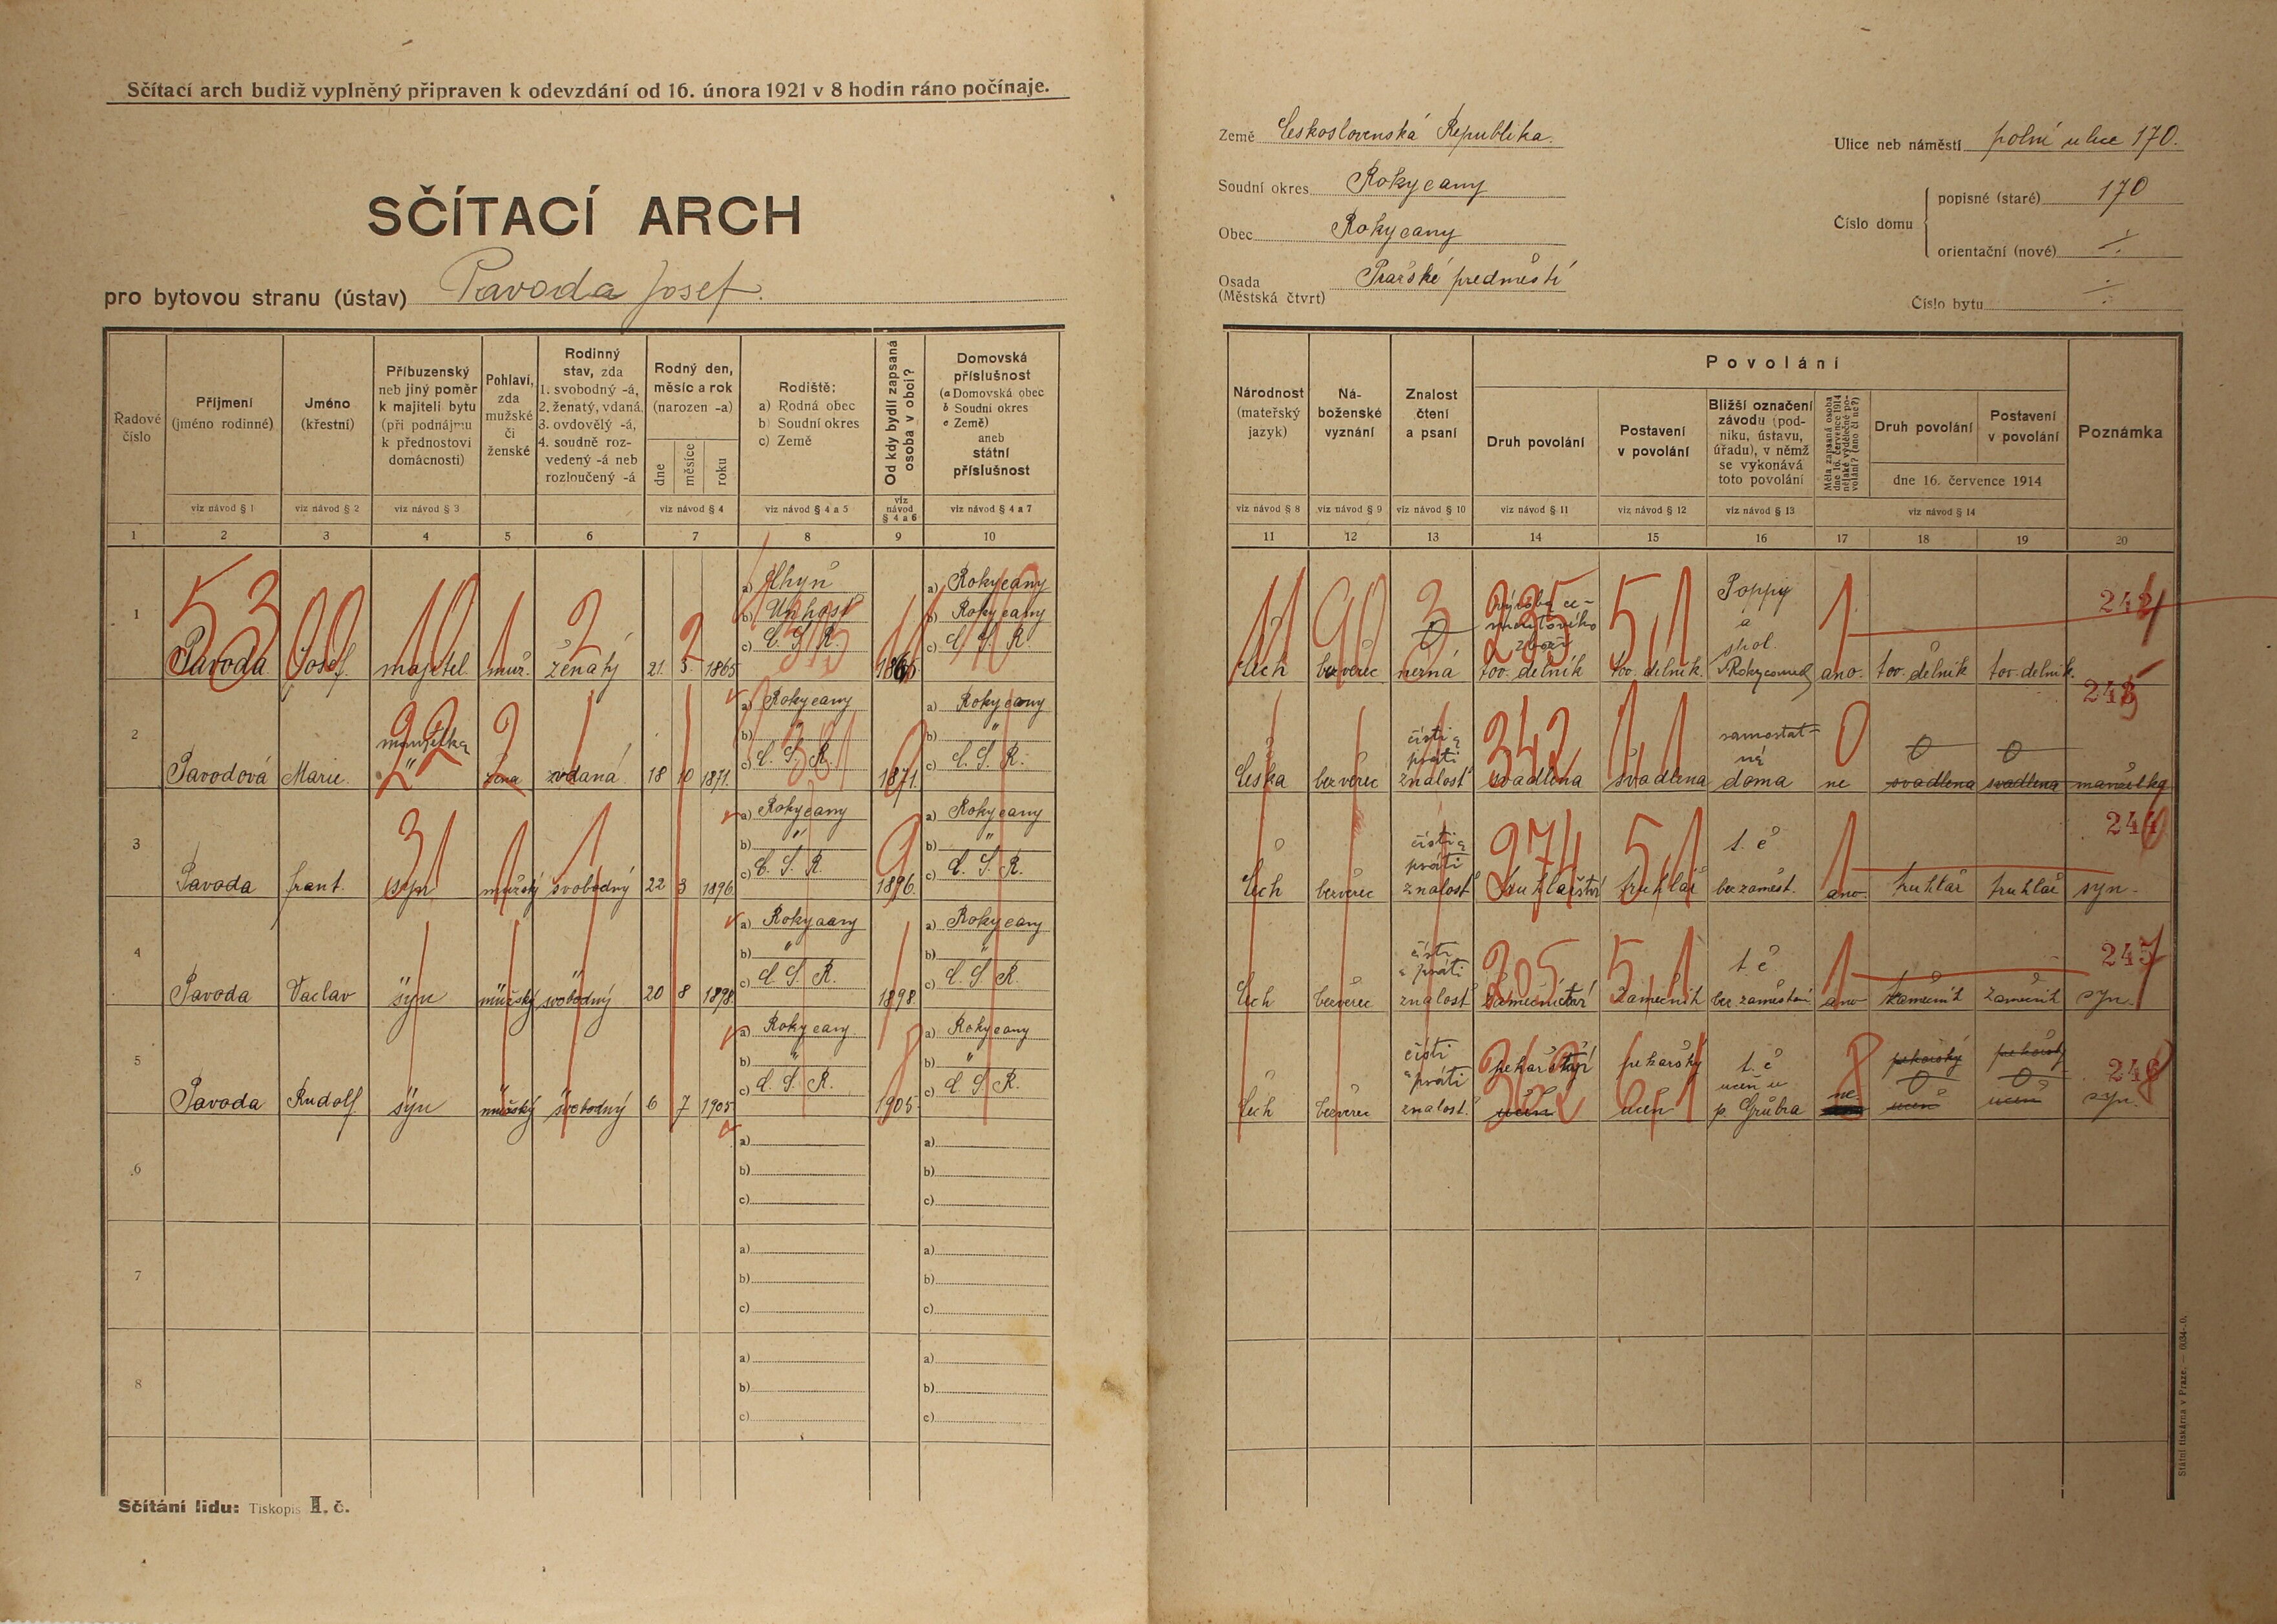 Sčítací arch budiž vyplněný připraven k odevzdání od 16. února 1921 v 8 hodin ráno počínaje.
SČÍTACÍ ARCH
pro bytovou stranu (ústav) Pavoda Josef.
Země Československá Republika.
Soudní okres Rokycany
Obec Rokycany
Osada (Městská čtvrt) Pražské předměstí
Ulice neb náměstí polní ulice 170.
Číslo domu
popisné (staré) 170
orientační (nové) ÷
Číslo bytu ÷
Řadové číslo
Příjmení (jméno rodinné)
Jméno (křestní)
Příbuzenský neb jiný poměr k majiteli bytu (při podnájmu k přednostovi domácnosti)
Pohlaví, zda mužské či ženské
Rodinný stav, zda 1. svobodný -á, 2. ženatý, vdaná, 3. ovdovělý -á, 4. soudně rozvedený -á neb rozloučený -á
Rodný den, měsíc a rok (narozen -a)
dne měsíce roku
Rodiště: a) Rodná obec b) Soudní okres c) Země
Od kdy bydlí zapsaná osoba v obci?
Domovská příslušnost (a Domovská obec b Soudní okres c Země) aneb státní příslušnost
viz návod § 1
viz návod § 2
viz návod § 3
viz návod § 4
viz návod § 4 a 5
viz návod § 4 a 6
viz návod § 4 a 7
1 2 3 4 5 6 7 8 9 10
Národnost (mateřský jazyk)
Náboženské vyznání
Znalost čtení a psaní
Povolání
Druh povolání
Postavení v povolání
Bližší označení závodu (podniku, ústavu, úřadu), v němž se vykonává toto povolání
Měla zapsaná osoba dne 16. července 1914 nějaké výdělečné povolání? (ano či ne?)
Druh povolání
Postavení v povolání
dne 16. července 1914
Poznámka
viz návod § 8
viz návod § 9
viz návod § 10
viz návod § 11
viz návod § 12
viz návod § 13
viz návod § 14
11 12 13 14 15 16 17 18 19 20
1 Pavoda Josef majitel muž. ženatý 21. 3. 1865
a) b) c) Č. S. R.
a) Rokycany b) Rokycany c) Č. S. R.
Čech bezvěrec 0 tov. dělník tov. dělník.
Poppy a spol.
ano. tov. dělník tov. dělník.
2 Pavodová Marie manželka žena vdaná 18 10 1871.
a) Rokycany b) " c) Č. S. R. 1871.
a) Rokycany b) " c) Č. S. R.
Češka bezvěrec čísti a psáti znalost švadlena švadlena samostatná doma ne 0 0
švadlena švadlena manželka
3 Pavoda Frant. syn mužský svobodný 22 3 1896.
a) Rokycany b) " c) Č. S. R. 1896.
a) Rokycany b) " c) Č. S. R.
Čech bezvěrec čísti a psáti znalost truhlářství truhlář t. č. bez zaměst. ano. truhlář truhlář syn.
4 Pavoda Vaclav syn mužský svobodný 20 8 1898.
a) Rokycany b) " c) Č. S. R. 1898.
a) Rokycany b) " c) Č. S. R.
Čech bezvěrec čísti a psáti znalost zámečnictví zámečník t. č. bez zaměstnání ano zámečník zámečník syn.
5 Pavoda Rudolf syn mužský svobodný 6 7 1905.
a) Rokycany b) " c) Č. S. R. 1905.
a) Rokycany b) " c) Č. S. R.
Čech bezvěrec čísti a psáti znalost. učeň pekařský učeň t. č. učeň u p. Grubra ne. pekařský pekařský 0 0
učeň učeň syn.
6 a) b) c) a) b) c)
7 a) b) c) a) b) c)
8 a) b) c) a) b) c)
Sčítání lidu: Tiskopis II. č.
Státní tiskárna v Praze.